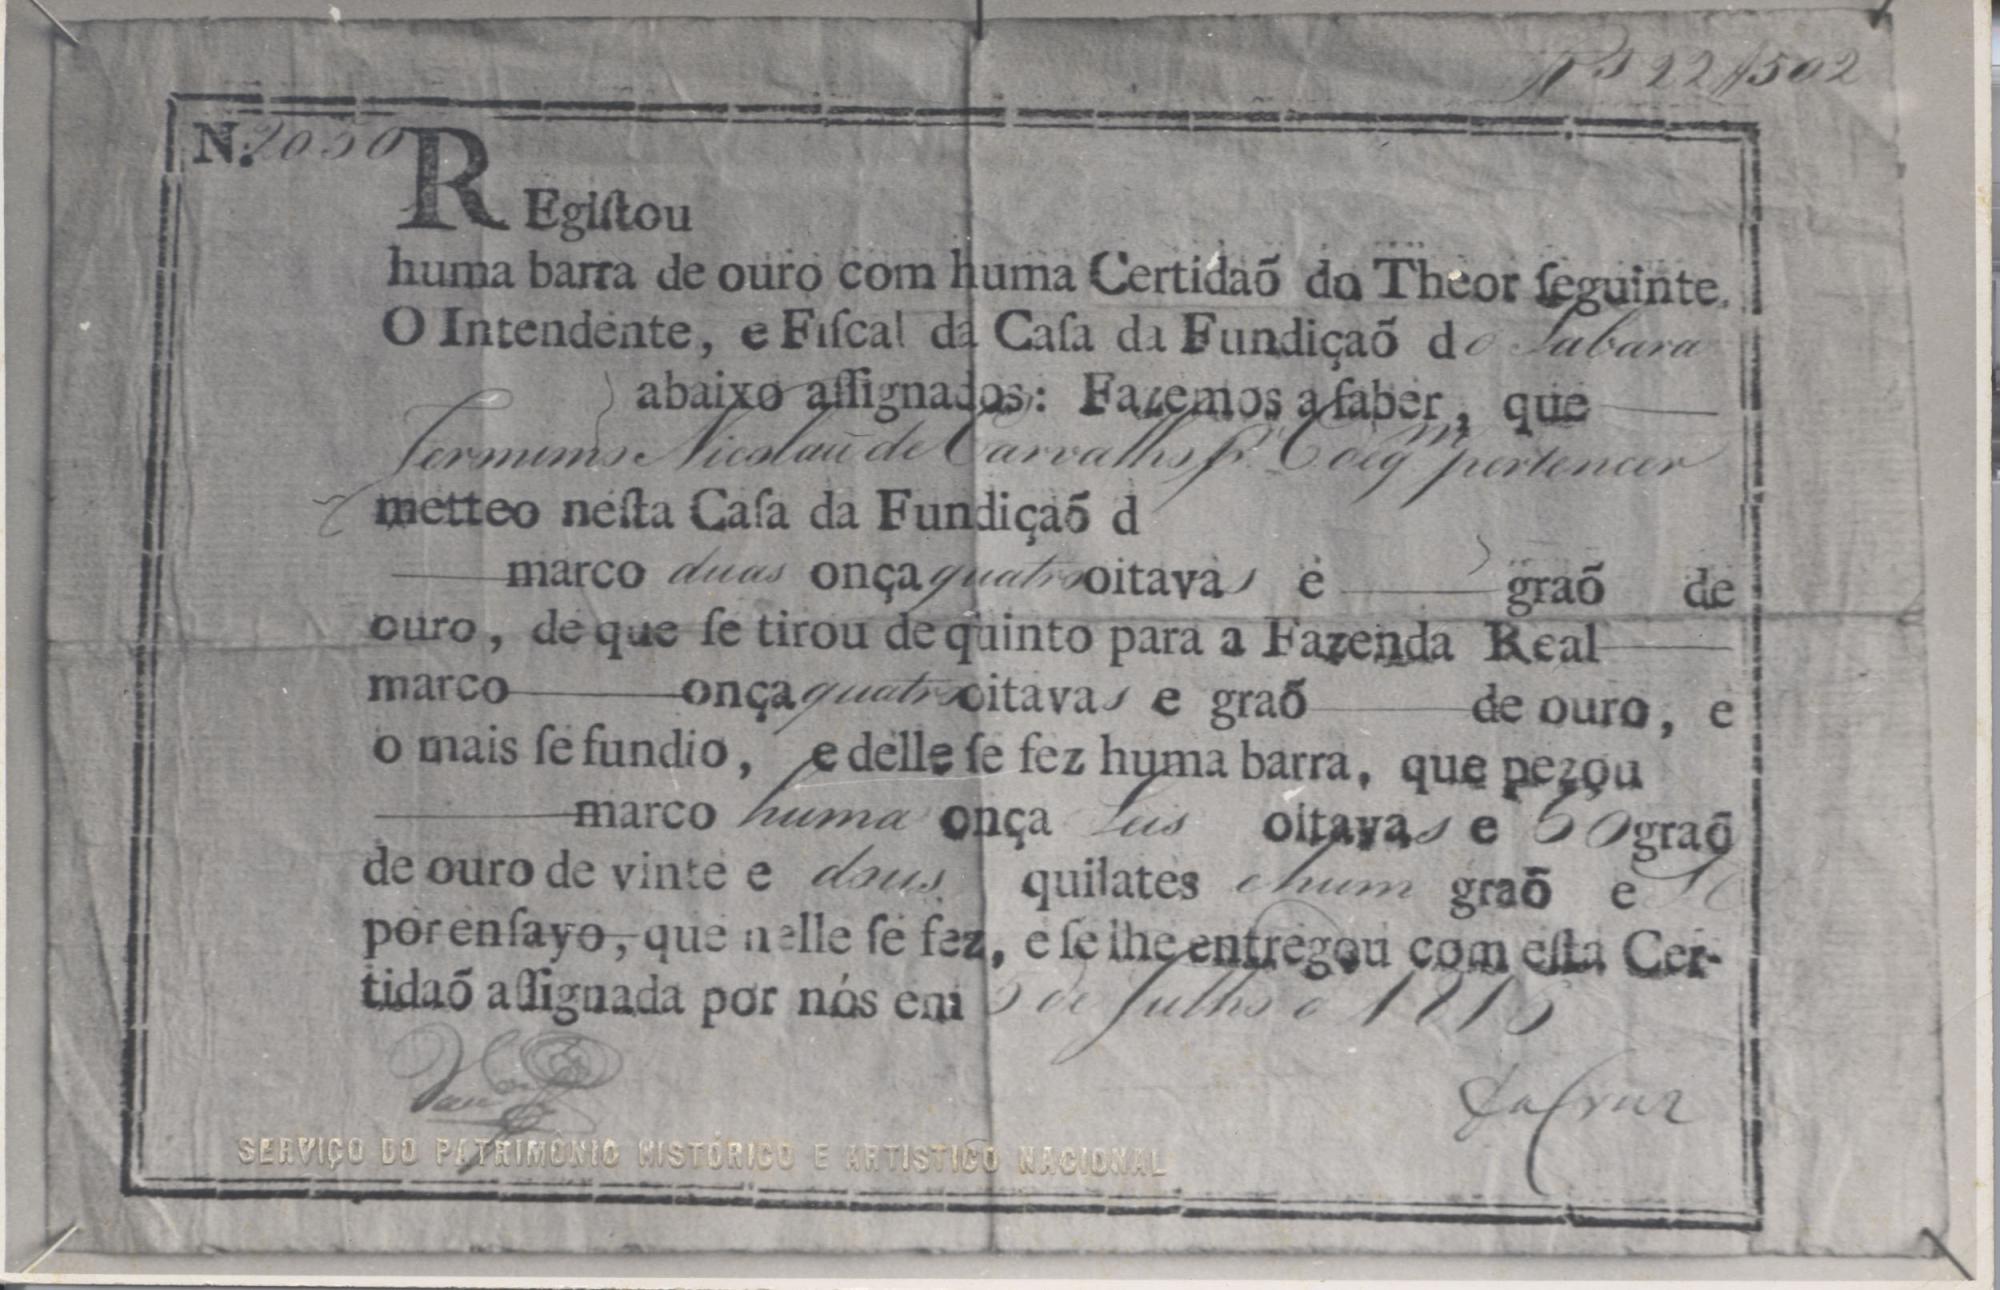 Rs 22$502
N. 2050
REgiſtou
huma barra de ouro com huma Certidaõ do Theor ſeguinte.
O Intendente, e Fiſcal da Caſa da Fundiçaõ do Sabara
abaixo aſſignados: Fazemos a ſaber, que
Nicolau de Carvalho pertencer
metteo neſta Caſa da Fundiçaõ d
marco duas onça quatro oitavas e graõ de
ouro, de que ſe tirou de quinto para a Fazenda Real
marco onça quatro oitavas e graõ de ouro, e
o mais ſe fundio, e delle ſe fez huma barra, que pezou
marco huma onça Seis oitavas e 60 graõ
de ouro de vinte e dous quilates e hum graõ e
por enſayo, que nelle ſe fez, e ſe lhe entregou com eſta Cer-
tidaõ aſſignada por nós em de Julho e
da Cruz
SERVIÇO DO PATRIMÔNIO HISTÓRICO E ARTISTICO NACIONAL